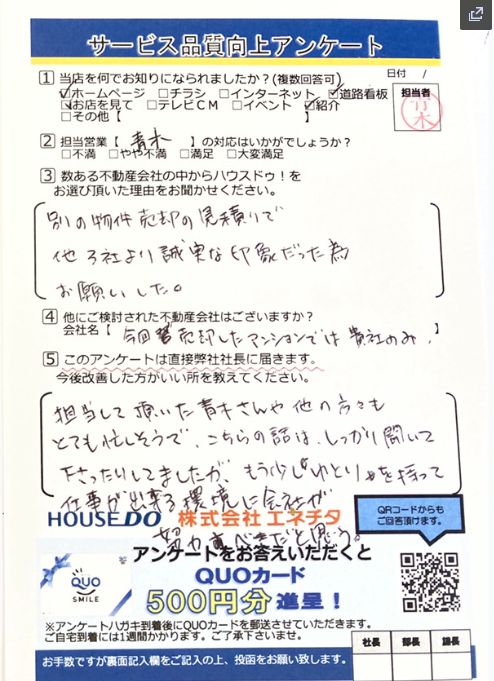 サービス品質向上アンケート
1 当店を何でお知りになられましたか？(複数回答可)
日付　/
☑ホームページ □チラシ □インターネット ☑道路看板
☑お店を見て □テレビCM □イベント ☑紹介
□その他【　】
担当者
青木
2 担当営業【 青木 】の対応はいかがでしょうか？
□不満 □やや不満 □満足 □大変満足
3 数ある不動産会社の中からハウスドゥ！を
お選び頂いた理由をお聞かせください。
別の物件売却の見積りで
他3社より誠実な印象だった為
お願いした。
4 他にご検討された不動産会社はございますか？
会社名【 今回売却したマンションでは貴社のみ. 】
5 このアンケートは直接弊社社長に届きます。
今後改善した方がいい所を教えてください。
担当して頂いた青木さんや他の方々も
とても忙しそうで、こちらの話は、しっかり聞いて
下さったりしてましたが、もう少し"ゆとり"を持って
仕事が出来る環境に会社が
努力すべきだと思う。
HOUSE DO 株式会社 エネチタ
QRコードからも
ご回答頂けます。
アンケートをお答えいただくと
QUOカード
500円分 進呈！
QUO
SMILE
※アンケートハガキ到着後にQUOカードを郵送させていただきます。
ご自宅到着には1週間かかります。ご了承下さいませ。
社長 部長 課長
お手数ですが裏面記入欄をご記入の上、投函をお願い致します。